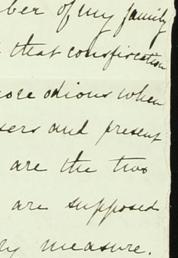 ber of my family
that consfircation
ore odious when
sers and present
are the two
are supposed
ry measure.